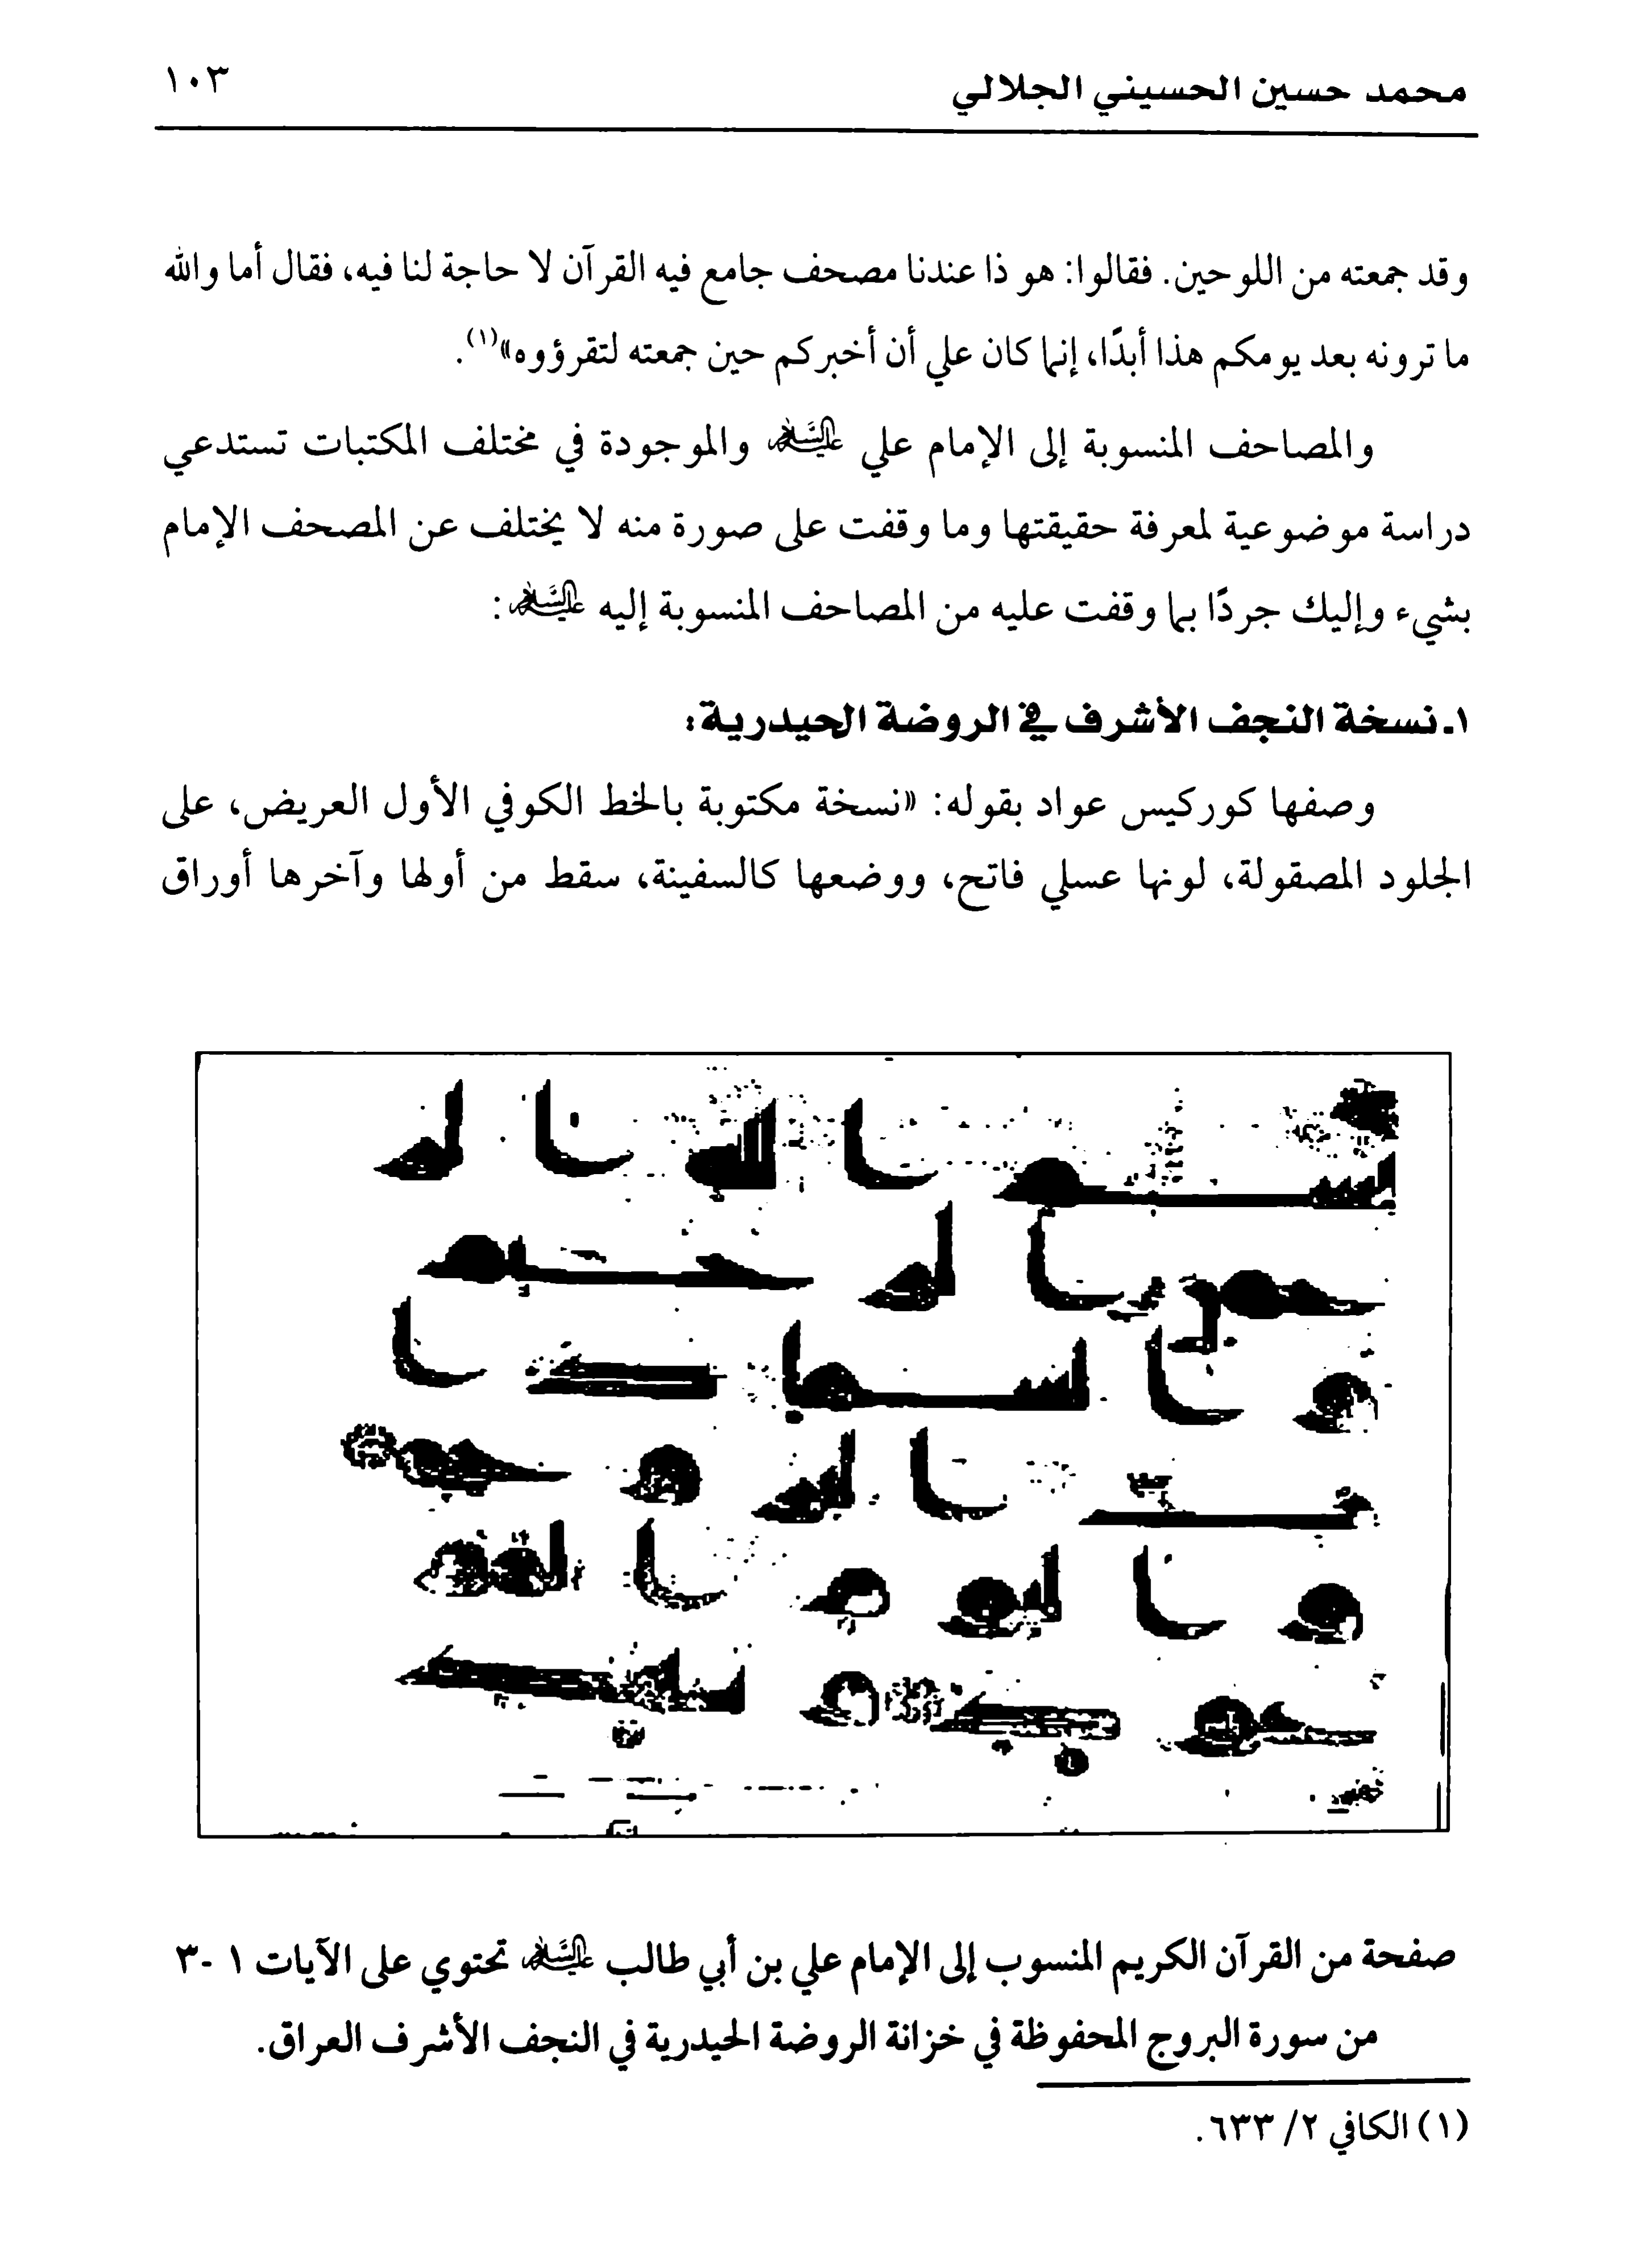 محمد حسين الحسيني الجلالي ١٠٣
وقد جمعته من اللوحين. فقالوا: هو ذا عندنا مصحف جامع فيه القرآن لا حاجة لنا فيه، فقال أما والله
ما ترونه بعد يومكم هذا أبدًا، إنما كان علي أن أخبركم حين جمعته لتقرؤوه»(١).
والمصاحف المنسوبة إلى الإمام علي عليه السلام والموجودة في مختلف المكتبات تستدعي
دراسة موضوعية لمعرفة حقيقتها وما وقفت على صورة منه لا يختلف عن المصحف الإمام
بشيء وإليك جردًا بما وقفت عليه من المصاحف المنسوبة إليه عليه السلام:
١ـ نسخة النجف الأشرف في الروضة الحيدرية:
وصفها كوركيس عواد بقوله: «نسخة مكتوبة بالخط الكوفي الأول العريض، على
الجلود المصقولة، لونها عسلي فاتح، ووضعها كالسفينة، سقط من أولها وآخرها أوراق
بسم الله الر
حمن الرحيم
و السما
ذت البروج
و اليوم الموعو
صفحة من القرآن الكريم المنسوب إلى الإمام علي بن أبي طالب عليه السلام تحتوي على الآيات ١ -٣
من سورة البروج المحفوظة في خزانة الروضة الحيدرية في النجف الأشرف العراق.
(١) الكافي ٢/ ٦٣٣.